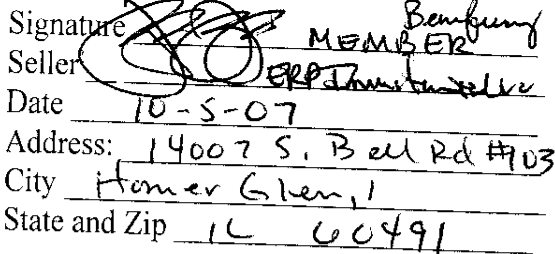 Signature MEMBER
Seller ERP
Date 10-5-07
Address: 14007 S. Bell Rd #103
City Homer Glen, I
State and Zip IL 60491